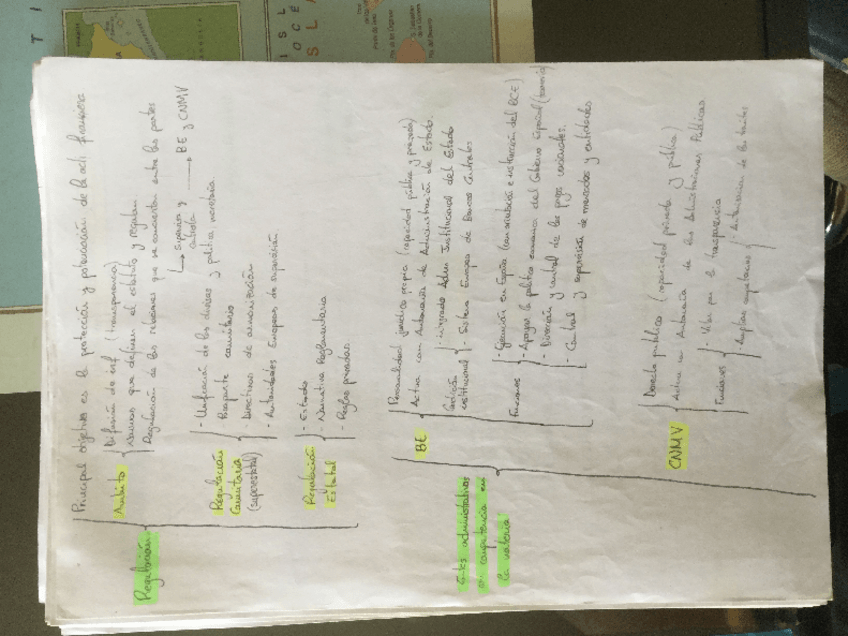 Regulación
Principal objetivo es la protección y potenciación de la acti. financiera
Ámbito
Difusión de inf. (transparencia)
Normas que definen el estatuto y regulan.
Regulación de las relaciones que se conciertan entre las partes
Supervisa y controla → BE y CNMV
Regulación
Comunitaria
(supraestatal)
- Unificación de las divisas y política monetaria.
Pasaporte comunitario
- Directivas de armonización
- Autoridades Europeas de supervisión
Regulación
Estatal
- Estado
- Normativa Reglamentaria
- Reglas privadas.
Entes administrativos
con competencia en
la materia
BE
Personalidad jurídica propia (capacidad pública y privada)
Actúa con Autonomía de Administración de Estado.
Posición
institucional
- integrado Adm Institucional del Estado
- Sistema Europeo de Bancos Centrales
Funciones
- Ejecución en España (con orientación e instrucción del BCE)
- Apoyar la política económica del Gobierno Español (tesorería)
- Dirección y control de los pagos nacionales.
- Control y supervisión de mercados y entidades
CNMV
Derecho público (capacidad privada y pública)
Actúa con Autonomía de las Administraciones Públicas
Funciones
- Velar por la trasparencia
- Amplias competencias